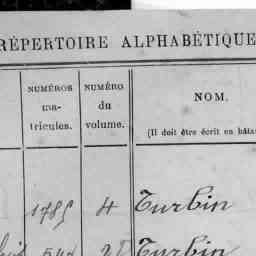 RÉPERTOIRE ALPHABÉTIQUE
NUMÉROS
ma-
tricules.
NUMÉRO
du
volume.
NOM.
(Il doit être écrit en bâta
1785 4 Turbin
Turbin